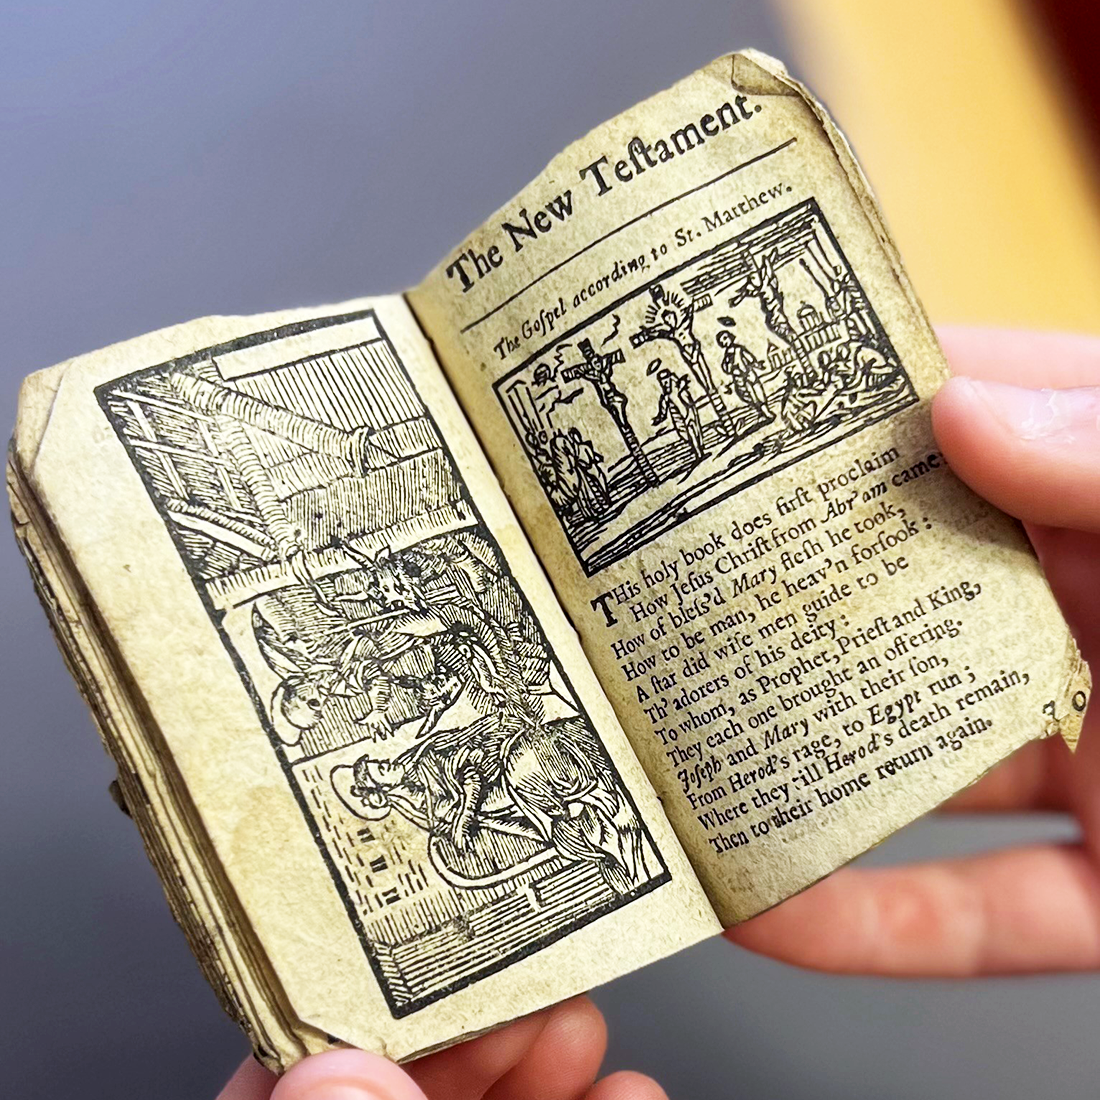 The New Teſtament.
The Goſpel according to St. Matthew.
THis holy book does firſt proclaim
How Jeſus Chriſt from Abr'am came:
How of bleſs'd Mary fleſh he took,
How to be man, he heav'n forſook:
A ſtar did wiſe men guide to be
Th' adorers of his deity:
To whom, as Prophet, Prieſt and King,
They each one brought an offering.
Joſeph and Mary with their ſon,
From Herod's rage, to Egypt run;
Where they till Herod's death remain,
Then to their home return again.